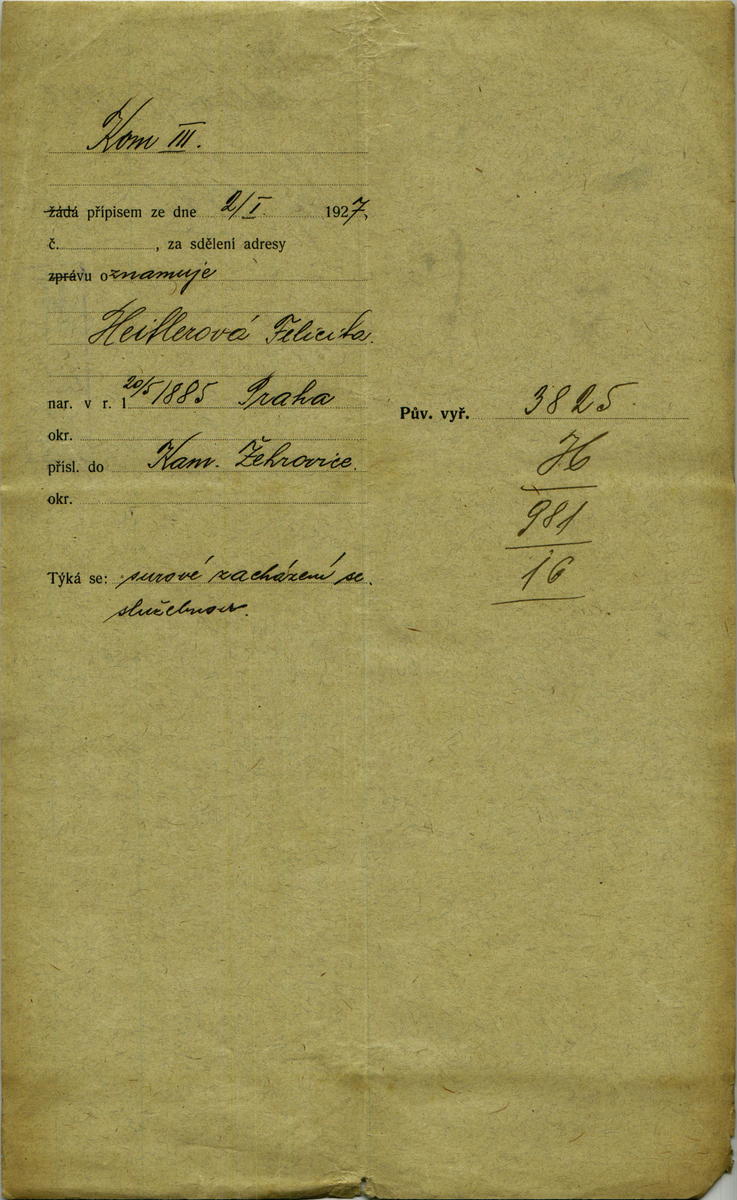 Kom III.
žádá přípisem ze dne 2/I. 1927,
č. , za sdělení adresy
zprávu oznamuje
Heitlerová Felicita.
nar. v r. 1 20/5 1885 Praha
okr.
přísl. do Kam. Žehrovice.
okr.
Týká se: surové zacházení se
služebnou.
Pův. vyř. 3825
H
981
16